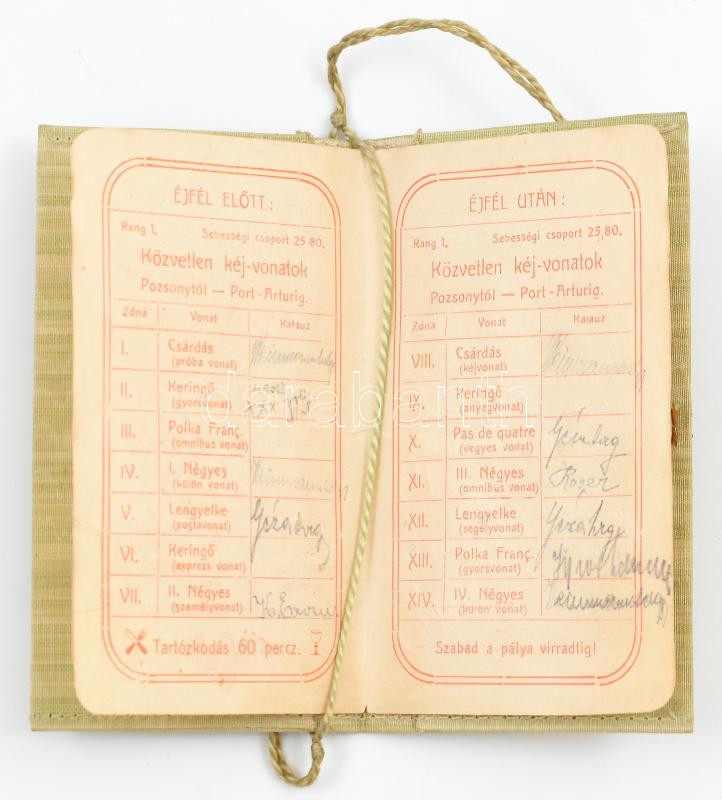 ÉJFÉL ELŐTT:
Rang 1. Sebességi csoport 25 80.
Közvetlen kéj-vonatok
Pozsonytól — Port-Arturig.
Zóna Vonat Kalauz
I. Csárdás
(próba vonat)
II. Keringő
(gyorsvonat)
III. Polka Franç.
(omnibus vonat)
IV. I. Négyes
(külön vonat)
V. Lengyelke
(postavonat)
VI. Keringő
(express vonat)
VII. II. Négyes
(személyvonat)
Tartózkodás 60 percz.
ÉJFÉL UTÁN:
Rang 1. Sebességi csoport 25/80.
Közvetlen kéj-vonatok
Pozsonytól — Port-Arturig.
Zóna Vonat Kalauz
VIII. Csárdás
(kéjvonat)
IX. Keringő
(anyagvonat)
X. Pas de quatre
(vegyes vonat)
XI. III. Négyes
(omnibus vonat)
XII. Lengyelke
(segélyvonat)
XIII. Polka Franç.
(gyorsvonat)
XIV. IV. Négyes
(külön vonat)
Szabad a pálya virradtig!
darabanth